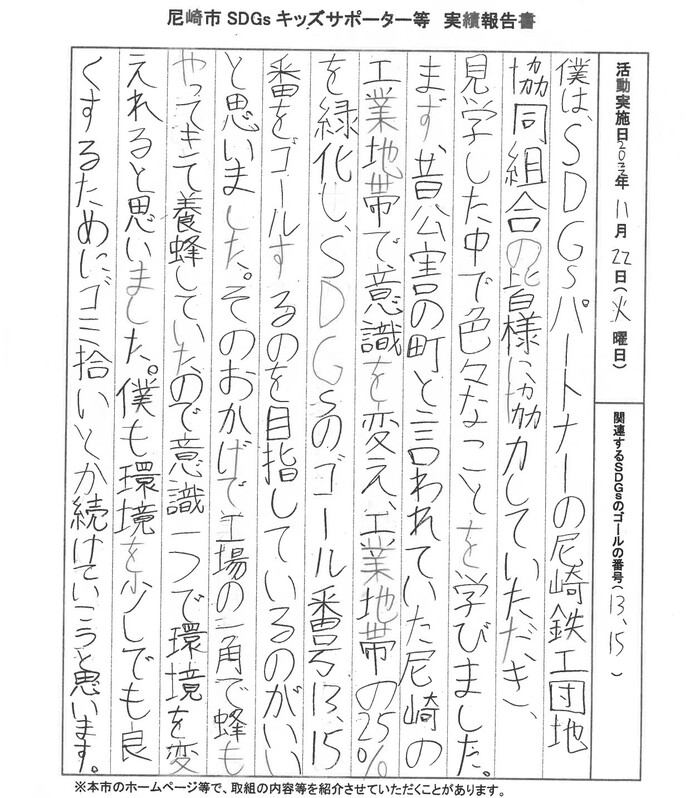 尼崎市 SDGs キッズサポーター等　実績報告書
活動実施日2022年 11月 22日(火曜日)
関連するSDGsのゴールの番号(13、15)
僕は、SDGsパートナーの尼崎鉄工団地
協同組合の皆様に協力していただき、
見学した中で色々なことを学びました。
まず、昔公害の町と言われていた尼崎の
工業地帯で意識を変え、工業地帯の25%
を緑化し、SDGsのゴール番号13、15
番をゴールするのを目指しているのがいい
と思いました。そのおかげで工場の一角で蜂も
やってきて養蜂していたので意識一つで環境を変
えれると思いました。僕も環境を少しでも良
くするために、ゴミ拾いとか続けていこうと思います。
※本市のホームページ等で、取組の内容等を紹介させていただくことがあります。